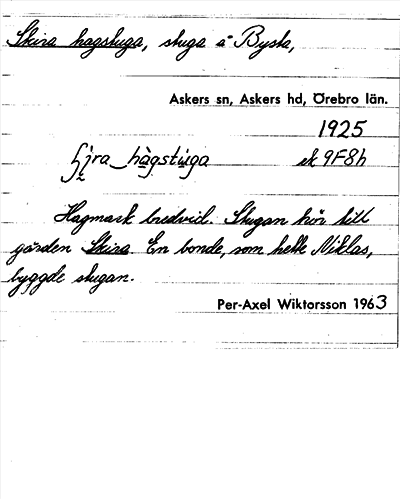 Skira hagstuga, stuga å Bysta,
Askers sn, Askers hd, Örebro län.
1925
ʃi̯ra hagstuga ek 9F8h
Hagmark bredvid. Stugan hör till
gården Skira. En bonde, som hette Niklas,
byggde stugan.
Per-Axel Wiktorsson 1963